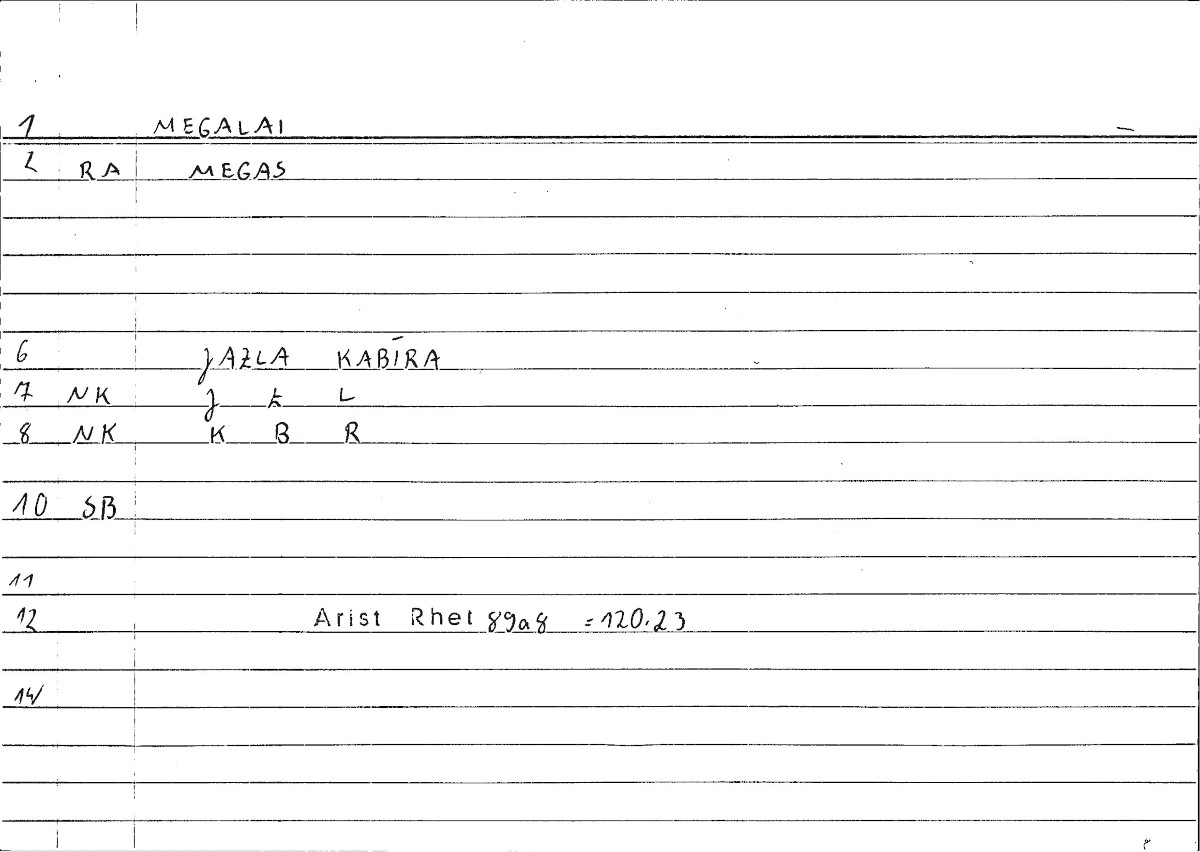 1 MEGALAI
2 RA MEGAS
6 JAZLA KABĪRA
7 NK J Z L
8 NK K B R
10 SB
11
12 Arist Rhet 89a8 = 120.23
14